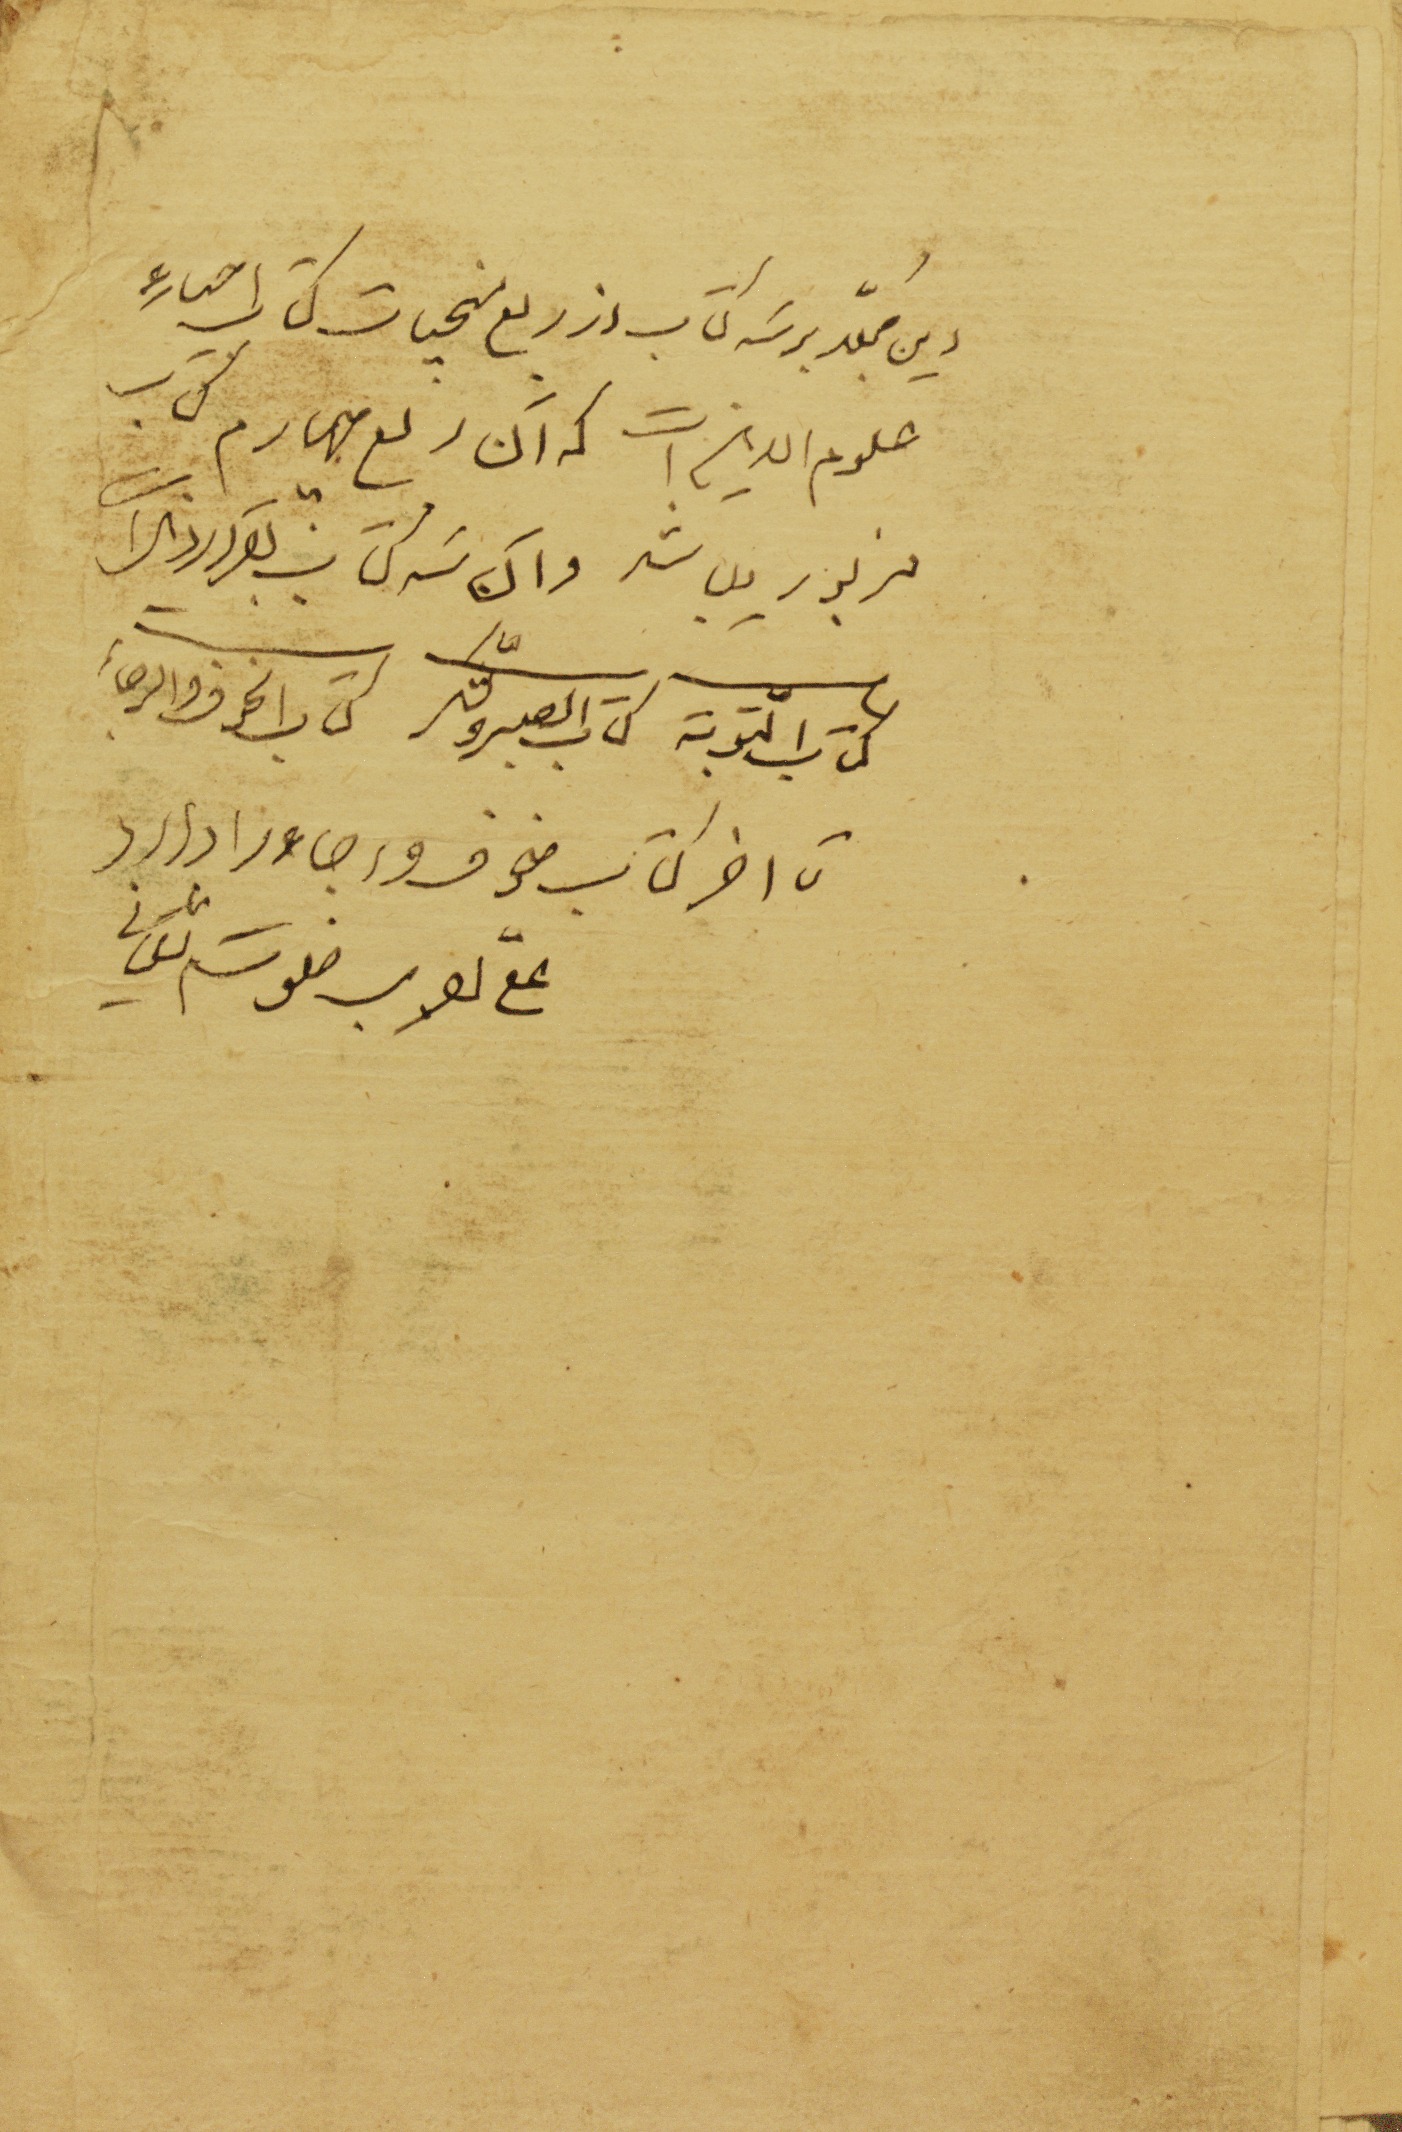 این مجلّد بر سه کتاب از ربع منجیات کتاب احیاء
علوم الدین است که آن ربع چهارم کتاب
مزبور میباشد و آن سه کتاب بقرار ذیل است
کتاب التّوبة کتاب الصبر والشّکر کتاب الخوف والرجاء
تا آخر کتاب خوف و رجاء را دارد